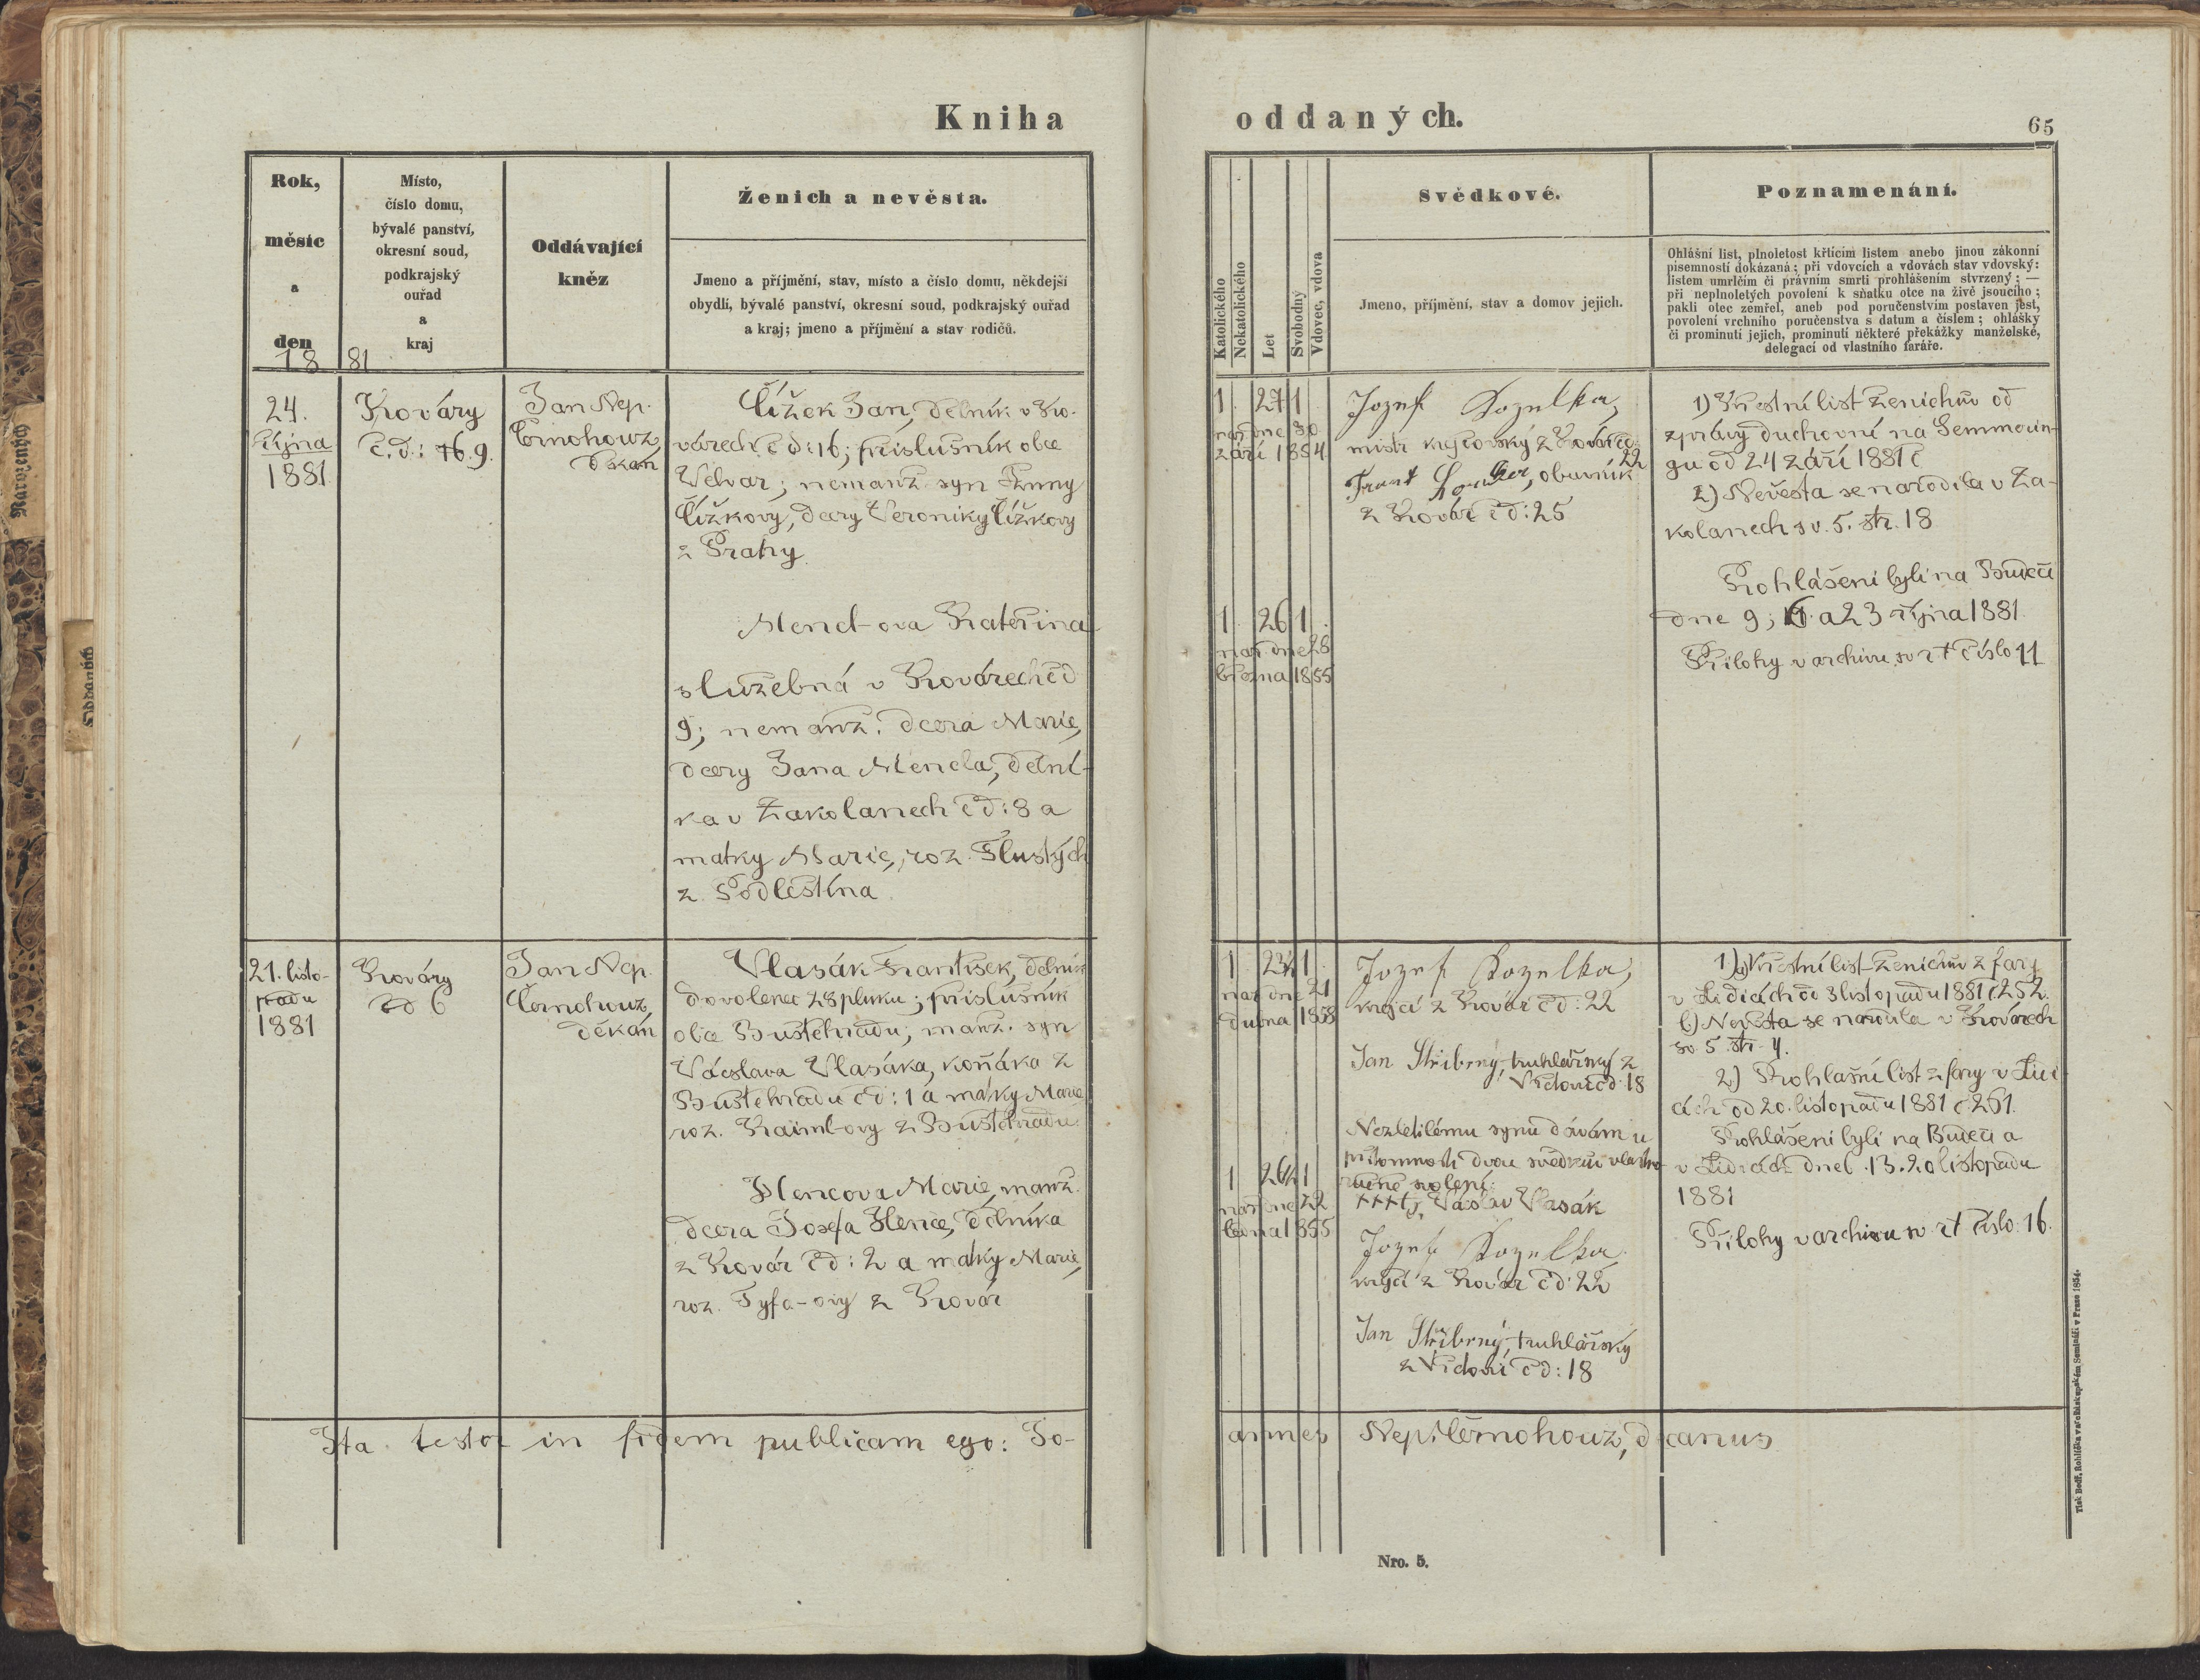 Kniha
Rok,
měsíc
a
den
18 81
Místo,
číslo domu,
bývalé panství,
okresní soud,
podkrajský
ouřad
a
kraj
Oddávající
kněz
Ženich a nevěsta.
Jmeno a příjmění, stav, místo a číslo domu, někdejší
obydlí, bývalé panství, okresní soud, podkrajský ouřad
a kraj; jmeno a příjmění a stav rodičů.
24.
října
1881
Kováry
č.d.: 16. 9.
Jan Nep.
Černohouz,
děkan
Čížek Jan, dělník v Ko-
várech čd: 16; příslušník obce
Velvar; nemanž syn Anny
Čížkovy, dcery Veroniky Čížkovy
z Prahy.
Mencl-ova Kateřina
služebná v Kovárech čd
9; nemanž. dcera Marie,
dcery Jana Mencla, dělní-
ka v Zakolanech čd: 8 a
matky Marie, roz. Fluských
z Podlešína
21. listo-
padu
1881
Kováry
čd 6
Jan Nep.
Černohouz,
děkan
Vlasák František, dělník
dovolenec 28 pluku; příslušník
obce Buštěhradu; manž. syn
Václava Vlasáka, koňáka z
Buštěhradu čd: 1 a matky Marie
roz. Kaiml-ovy z Buštěhradu.
Hencova Marie, manž.
dcera Josefa Hence, dělníka
z Kovár čd: 2 a matky Marie,
roz. Tyfa-ovy z Kovár
Ita testor in fidem publicam ego: Jo-
oddaných.
65
Katolického
Nekatolického
Let
Svobodný
Vdovec, vdova
Svědkové.
Jmeno, příjmění, stav a domov jejich.
Poznamenání.
Ohlášní list, plnoletost křtícím listem anebo jinou zákonní
písemností dokázaná; při vdovcích a vdovách stav vdovský:
listem umrlčím či právním smrti prohlášením stvrzený; —
při neplnoletých povolení k sňatku otce na živě jsoucího;
pakli otec zemřel, aneb pod poručenstvím postaven jest,
povolení vrchního poručenstva s datum a číslem; ohlášky
či prominutí jejich, prominutí některé překážky manželské,
delegací od vlastního faráře.
1 27 1
nar. dne 30
září 1854
1 26 1
nar. dne 28
března 1855
Jozef Kozelka,
mistr krejčovský z Kovár čd:
22
Frant , obuvník
z Kovár čd: 25
1) Křestní list ženichův od
zprávy duchovní na Semmerin-
gu od 24 září 1881 č
2) Nevěsta se narodila v Za-
kolanech sv. 5. str. 18
Prohlášeni byli na Budeči
dne 9; 16. a 23 října 1881.
Přílohy v archivu sv číslo 11
1 23½ 1
nar dne 21
dubna 1858
1 26½ 1
nar dne 22
ledna 1855
Jozef Kozelka,
krejčí z Kovár čd: 22
Jan Stříbrný, truhlářský z
čd: 18
Nezletilému synu dávám u
přítomnosti dvou svědkův vlastno-
ručně svolení:
+++ Václav Vlasák
Jozef Kozelka
krejčí z Kovár čd: 22
Jan Stříbrný, truhlářský
z čd: 18
1) a) Křestní list ženichův z fary
v Lidicích od 3 listopadu 1881 č 252.
b) Nevěsta se narodila v Kovárech
sv. 5 str. 4.
2) Prohlašní list z fary v Lidi-
cích od 20. listopadu 1881 č 261.
Prohlášeni byli na Budeči a
v Lidicích dne 6. 13. 20 listopadu
1881
Přílohy v archivu sv číslo: 16.
annes Nep. Černohouz, decanus
Nro. 5.
Tisk Bedř. Rohlíčka v arcibiskupském Semináři v Praze 1854.